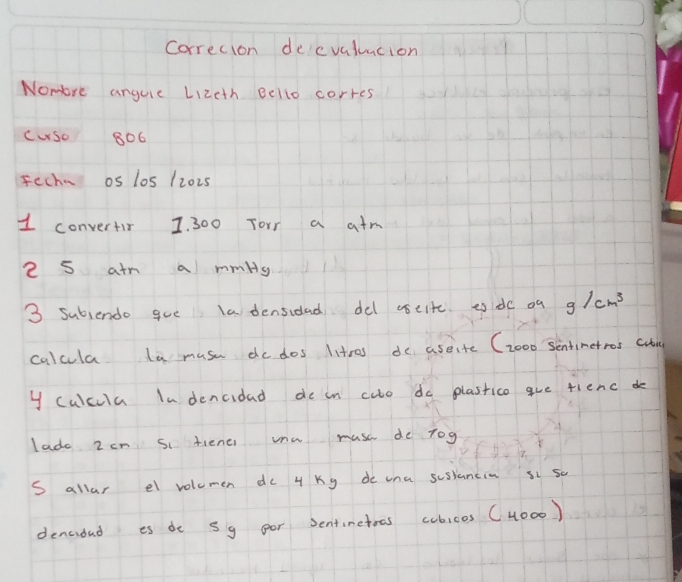 Correcion de evaluacion
Nombre angyie Lizeth Bello cortes
Curso 806
Fecha 05/05/2025
1 convertir 1.300 Torr a atm
2 5 atm a mmHg
3 Sabiendo que la densidad del aseite es de 09 g/cm³
calcula la masa de dos litros de aseite (2000 Sentimetros cubic
4 calcula la dencidad de un cubo de plastico que tiene de
lado 2cm si tiene una masa de 10g
5 allar el volumen de 4 Kg de una sustancia si su
dencidad es de 5g por sentimetros cubicos (4000)